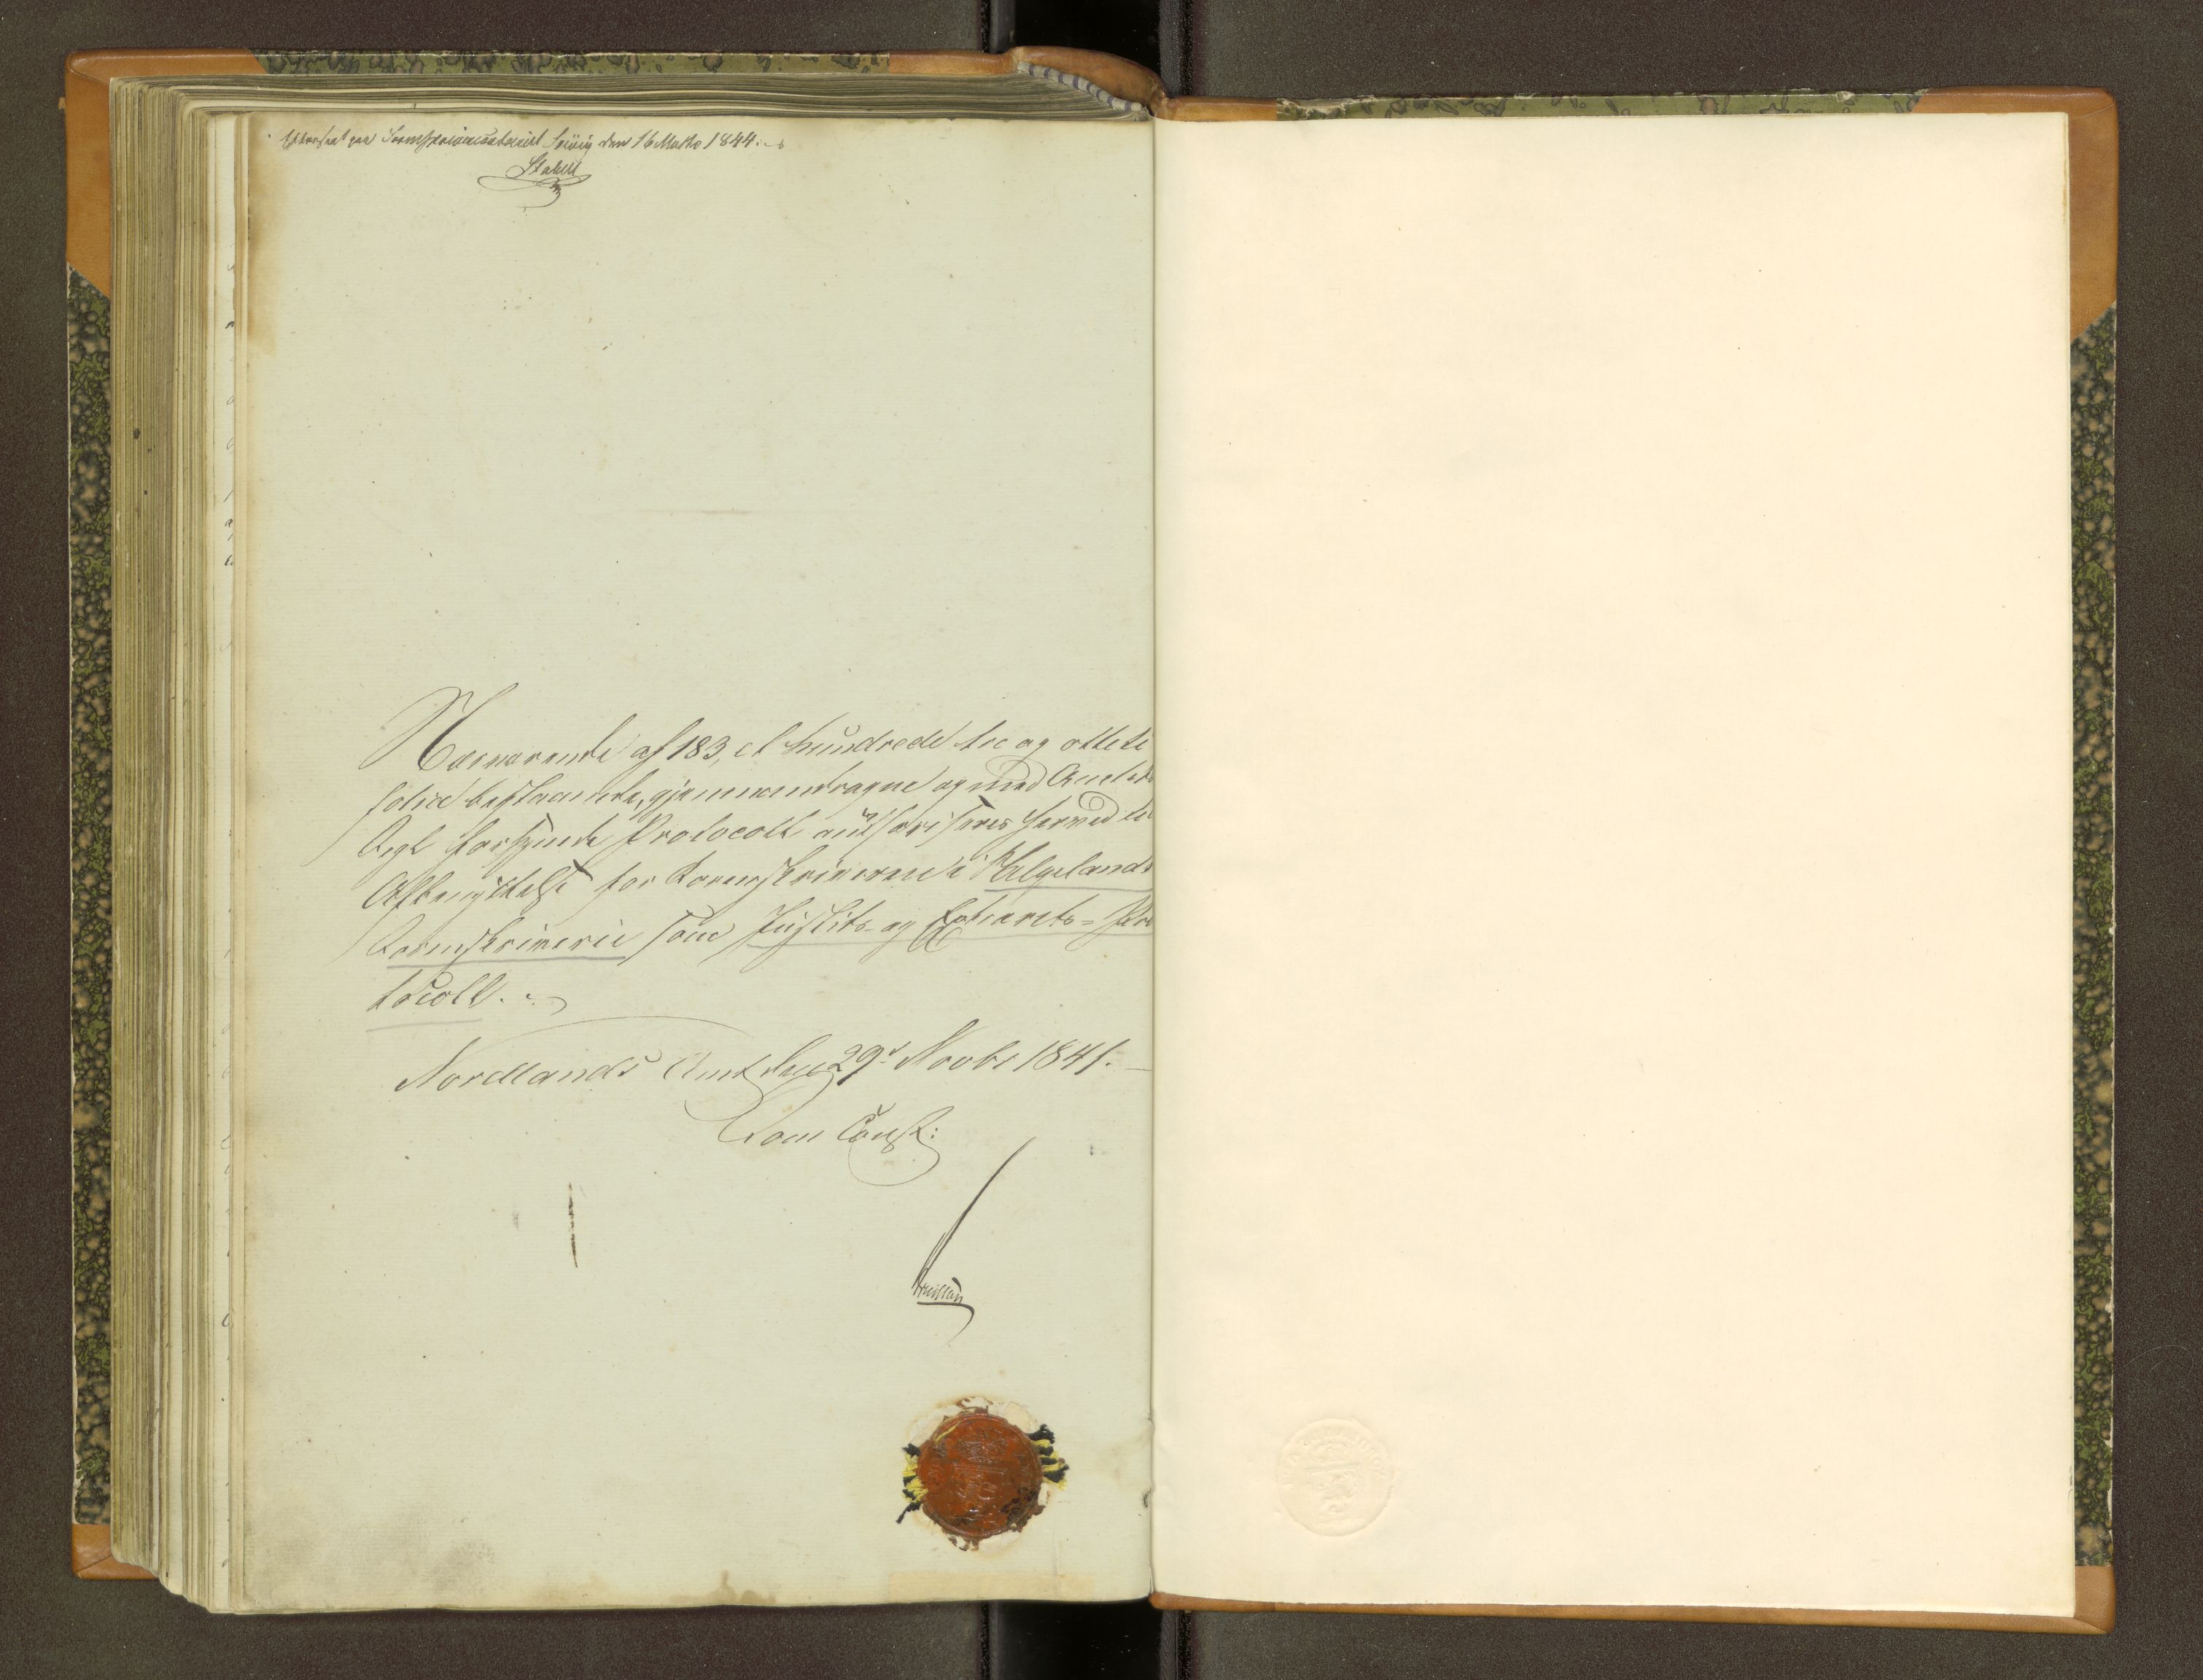 Efterseet paa Sorenskrivercontoiret Søvig den 16 Marts 1844.
Stabell
Nærværende af 183, et hundrede tre og otteti
folier bestaaende, gjennemdragne og med Amtets
Segl forsynede Protocoll authoriseres herved til
Afbenyttelse for Sorenskriveren i Helgelands
Sorenskriverie som Justits- og Extrarets-Pro
tocoll.
Nordlands Amt den 29d Novbr 1841.
Som Const: